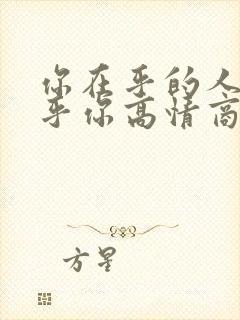 你在乎的人
乎你高情商
方星